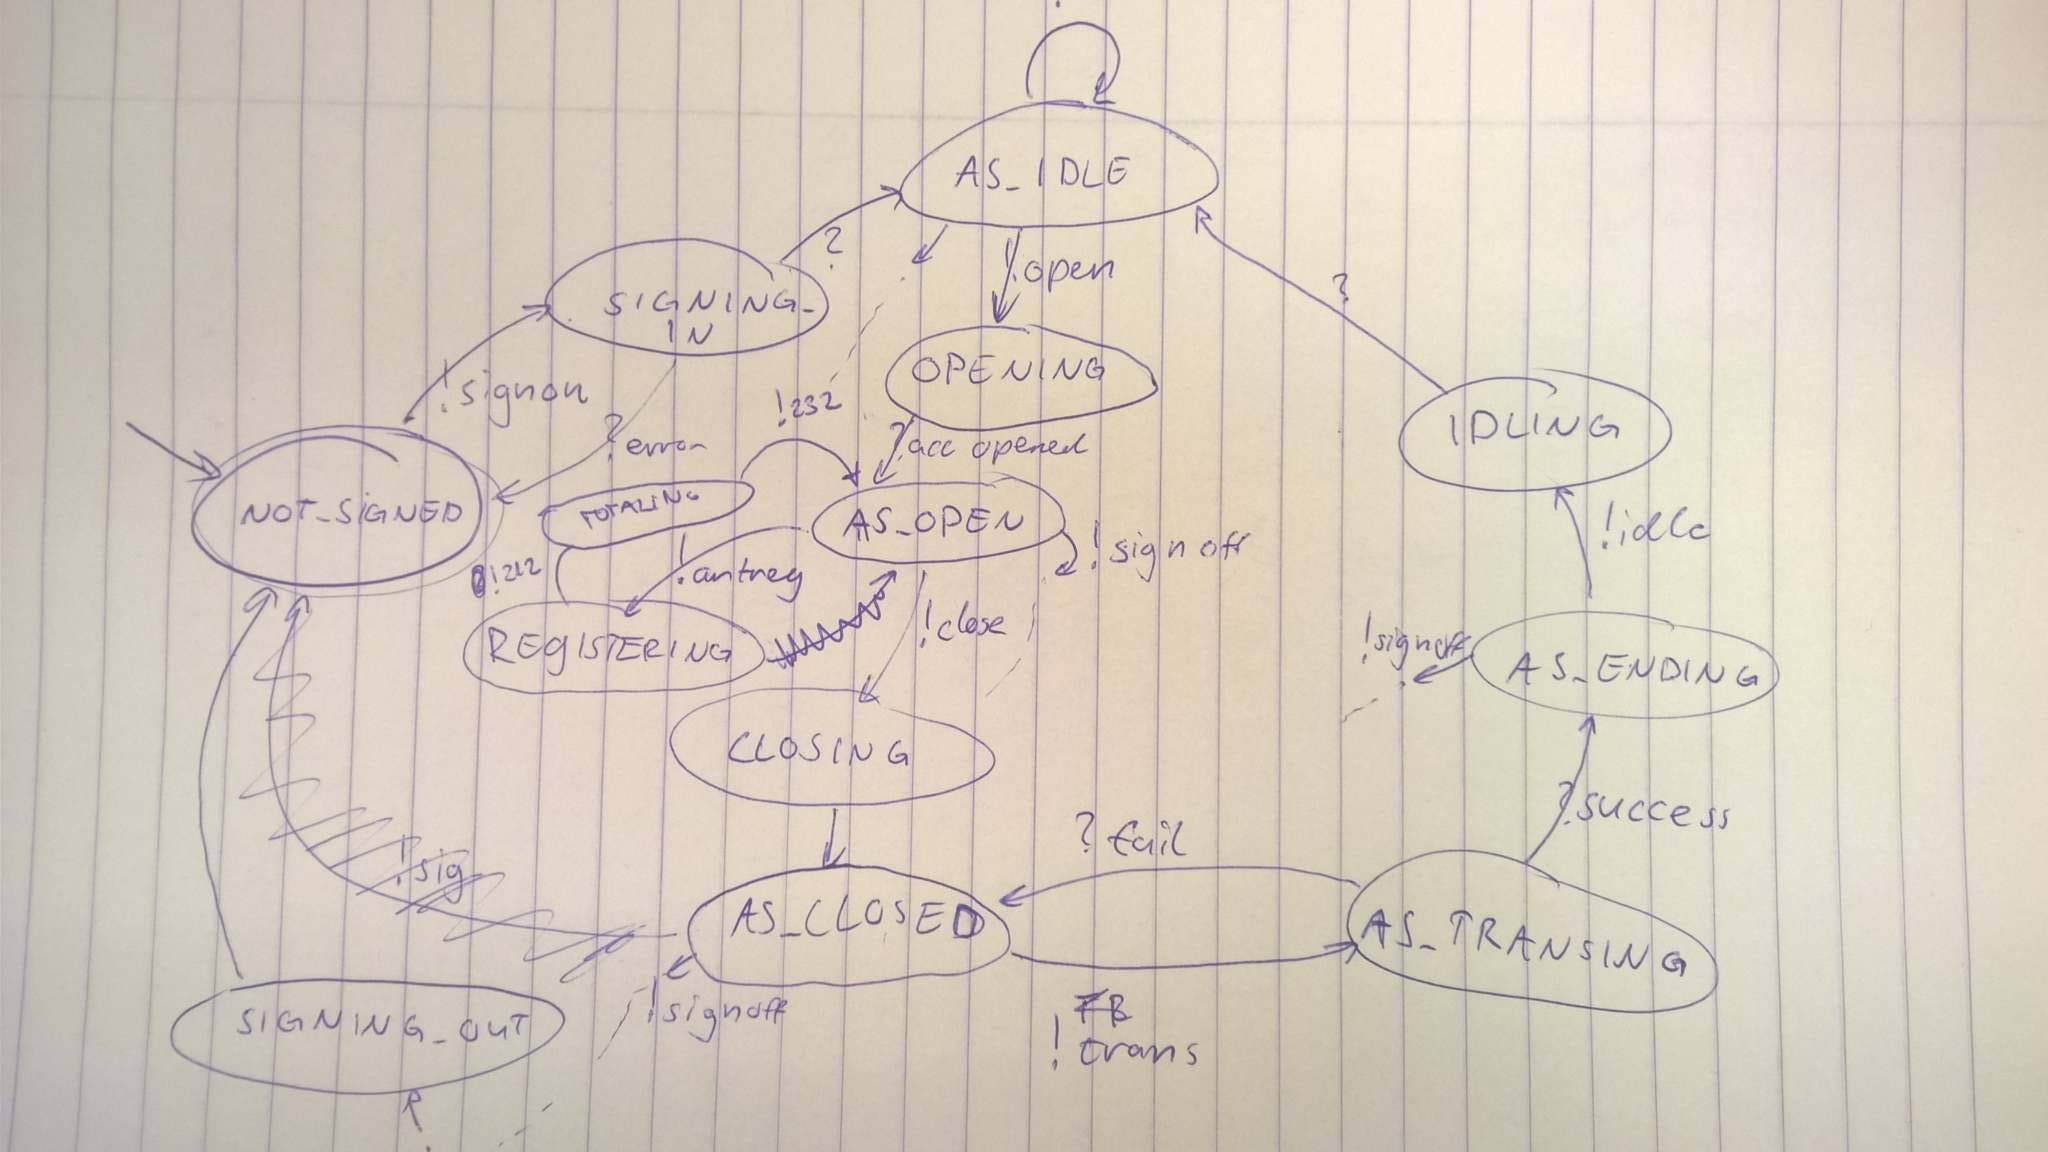 AS_IDLE
?
!open
SIGNING_
IN
?
OPENING
IDLING
!signon
!232
?acc opened
?error
NOT_SIGNED
TOTALING
AS_OPEN
!signoff
!idle
!212
!antreg
REGISTERING
!close
!signoff
AS_ENDING
CLOSING
?success
?fail
!sig
AS_CLOSED
AS_TRANSING
!signoff
SIGNING_OUT
!trans